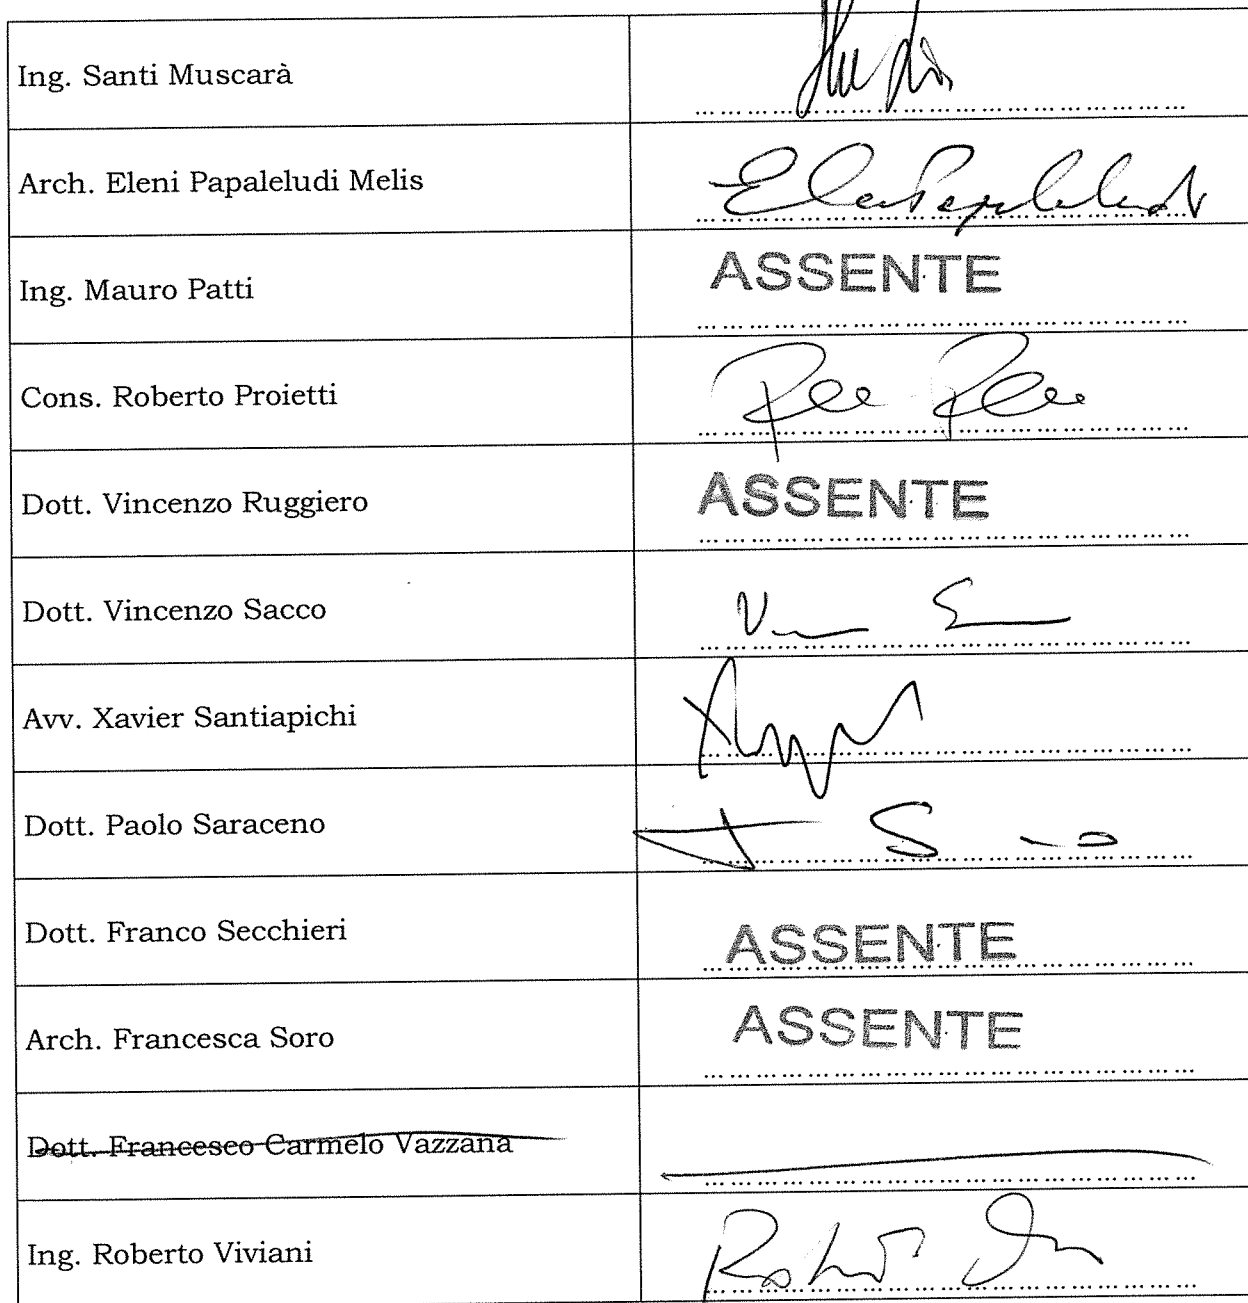 Ing. Santi Muscarà
Arch. Eleni Papaleludi Melis
Ing. Mauro Patti ASSENTE
Cons. Roberto Proietti
Dott. Vincenzo Ruggiero ASSENTE
Dott. Vincenzo Sacco
Avv. Xavier Santiapichi
Dott. Paolo Saraceno
Dott. Franco Secchieri ASSENTE
Arch. Francesca Soro ASSENTE
Dott. Francesco Carmelo Vazzana
Ing. Roberto Viviani